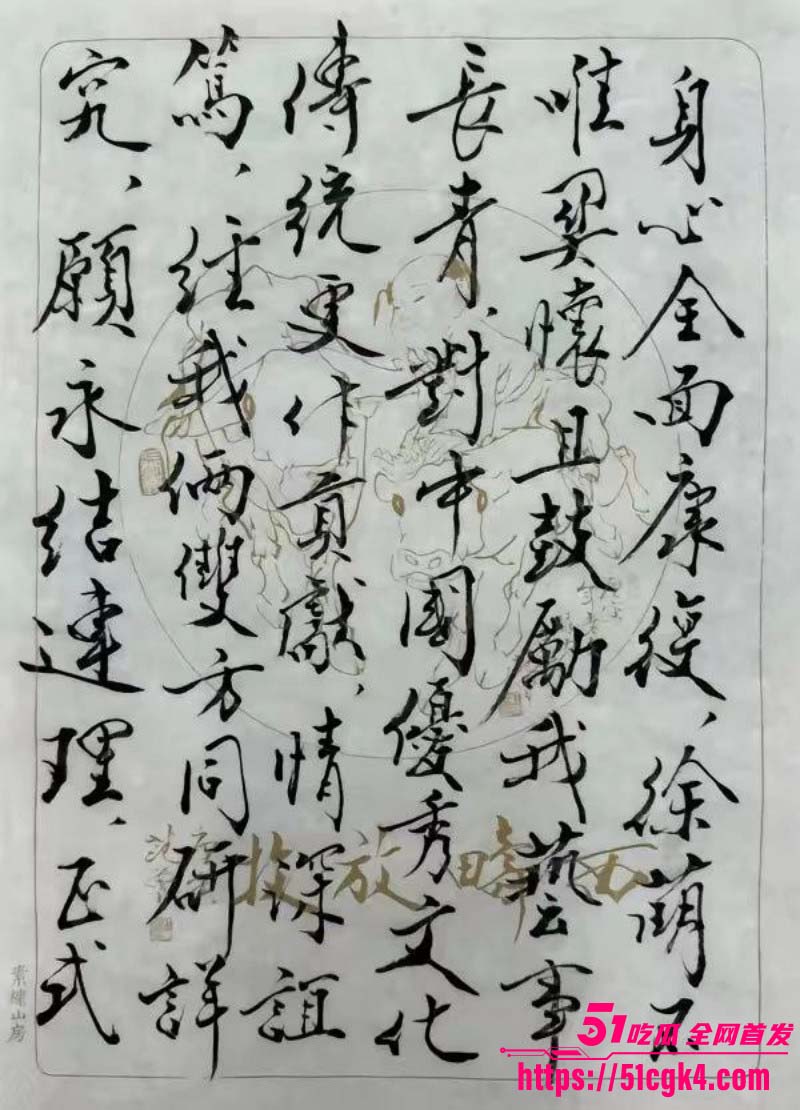 身心全面康復、徐萌不
唯契懷且鼓勵我藝事
長青、對中國優秀文化
傳統更作貢獻、情深誼
篤、經我倆雙方同研詳
究、願永結連理、正式
西疇放牧
素縑山房
51吃瓜 全网首发
https://51cgk4.com